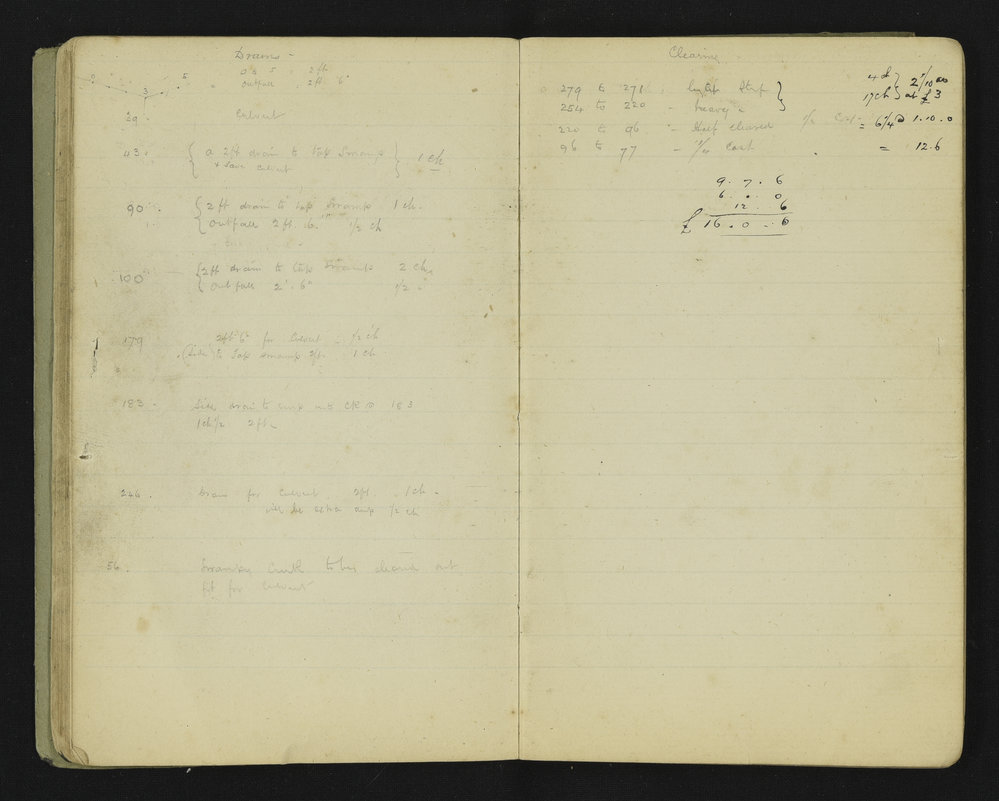 Drains -
0 to 5 . 2ft
outfall . 2ft 6"
2 3 5
29 . Culvert
43 . { a 2ft drain to tap Swamp } 1 ch
& Save Culvert
90 . { 2ft drain to tap Swamp 1 ch.
{ Outfall 2ft. 6" 1/2 ch
100 { 2ft drain to tap Swamp 2 chs
{ Outfall 2'. 6" 1/2 "
179 2ft 6" for Culvert . 1/2 ch
(Side) to Tap swamp 2ft. 1 ch
183 . Side drain to swp into CK @ 183
1 ch 1/2 2ft.
246 . Drain for Culvert . 2ft . 1 ch .
will be extra 1/2 ch
56 . to be cleaned out
fit for Culvert
Clearing
279 to 271 : light }
254 to 220 - heavy " }
4 ch } 2/10/00
17 ch } at £3
220 to 96 " Half cleared 1/2 Cost = 6/4 @ 1.10.0
96 to 77 - 1/4 Cost . = 12.6
9 . 7 . 6
6 . . 0
12 . 6
£ 16 . 0 . 0